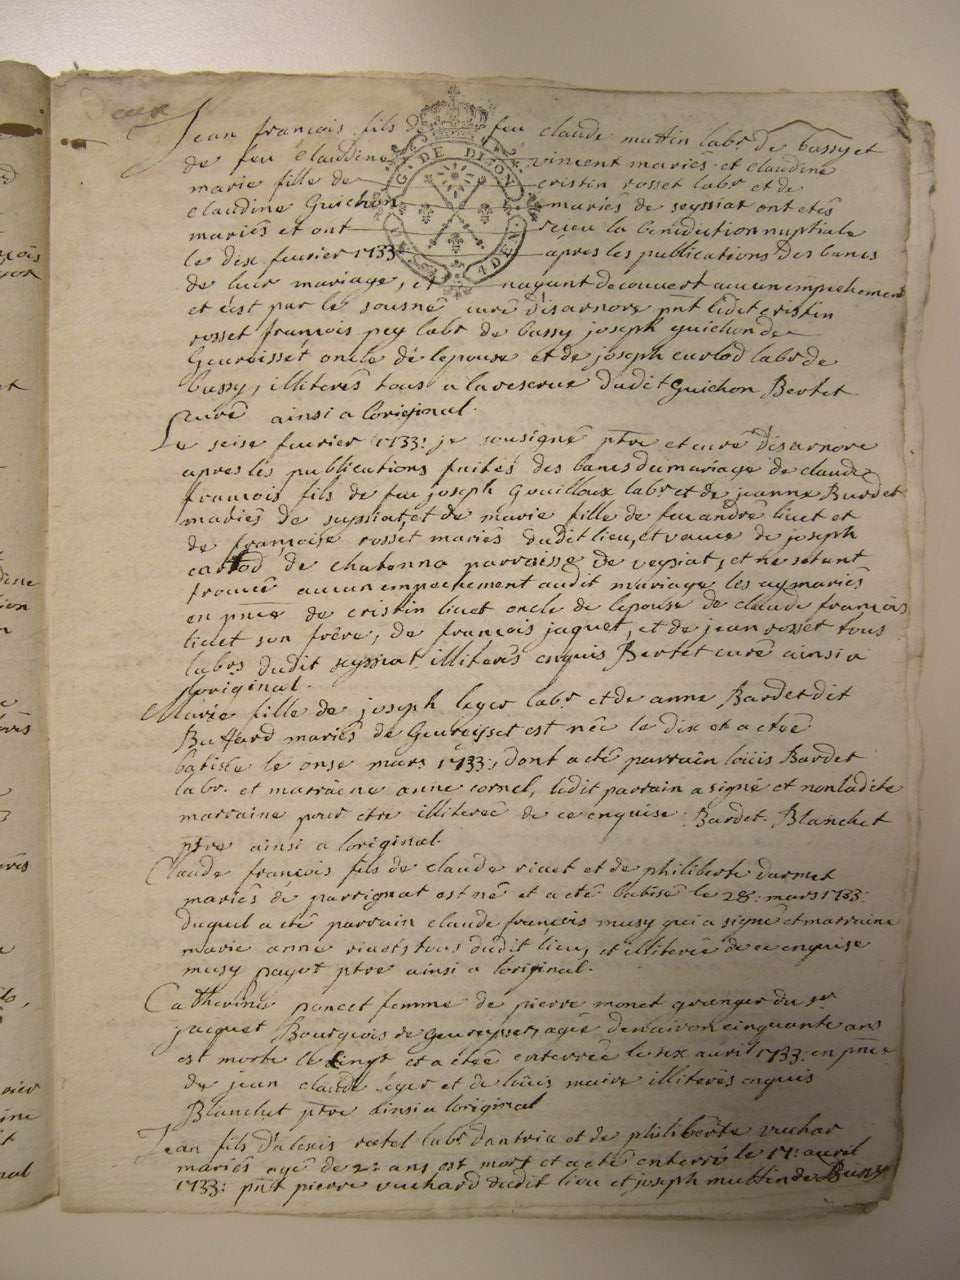 Jean françois fils de feu claude muttin labr. de bussy et
de feu claudine vincent mariés et claudine
marie fille de cristin rosset labr et de
claudine Guichon mariés de seyssiat ont etés
mariés et ont receu la benediction nuptiale
le dix fevrier 1733 apres les publications des bancs
de leur mariage, et n'ayant decouvert aucun empechement
et c'est par le sousné curé d'isarnore pnt ledit cristin
rosset françois pey labr de bussy joseph guichon de
Geuroisset oncle de lepouse et de joseph curlod labr de
bussy, illiterés tous a la reserve dudit Guichon Bertet
curé ainsi a loriginal.
Le seise fevrier 1733: je sousigné ptre et curé d'isarnore
apres les publications faites des bans du mariage de claude
françois fils de feu joseph Gouilloux labr et de jeanne Burdet
mariés de seyssiat, et de marie fille de feu andré livet et
de françoise rosset mariés dudit lieu, et veuve de joseph
carlod de chatonna parroisse de veysiat, et ne setant
trouvé aucun empechement audit mariage les ay mariés
en pnce de cristin livet oncle de lepouse de claude françois
livet son frère, de françois jaquet, et de jean rosset tous
labrs dudit seyssiat, illiterés enquis Bertet curé ainsi a
loriginal.
Marie fille de joseph leger labr. et de anne Bardet dit
Buffard mariés de Geuroisset est née le dix et a eté
batisée le onse mars 1733:, dont a eté parrain loüis Bardet
labr. et marraine anne cornel, ledit parrain a signé et non ladite
marraine pour etre illiterée de ce enquise Bardet. Blanchet
ptre ainsi a loriginal.
Claude françois fils de claude rivet et de philiberte darmet
mariés de parrignat est né et a eté batisé le 28: mars 1733:
duquel a eté parrain claude françois musy qui a signé et marraine
marie anne rivet, tous dudit lieu, et illiterée de ce enquise
musy payot ptre ainsi a loriginal.
Catherine poncet femme de pierre monet granger du sr
jacquet Bourgeois de Geureysset, agée denviron cinquante ans
est morte le cinq et a eté enterrée le six avril 1733: en pnce
de jean claude leger et de loüis maire illiterés enquis
Blanchet ptre ainsi a loriginal
Jean fils d'alexis labr et de philiberte vuchar
mariés agé de 2: ans est mort et a eté enterré le 17: avril
1733: pnt pierre vuchard dudit lieu et joseph muttin de Bussy
G. DE DIJON